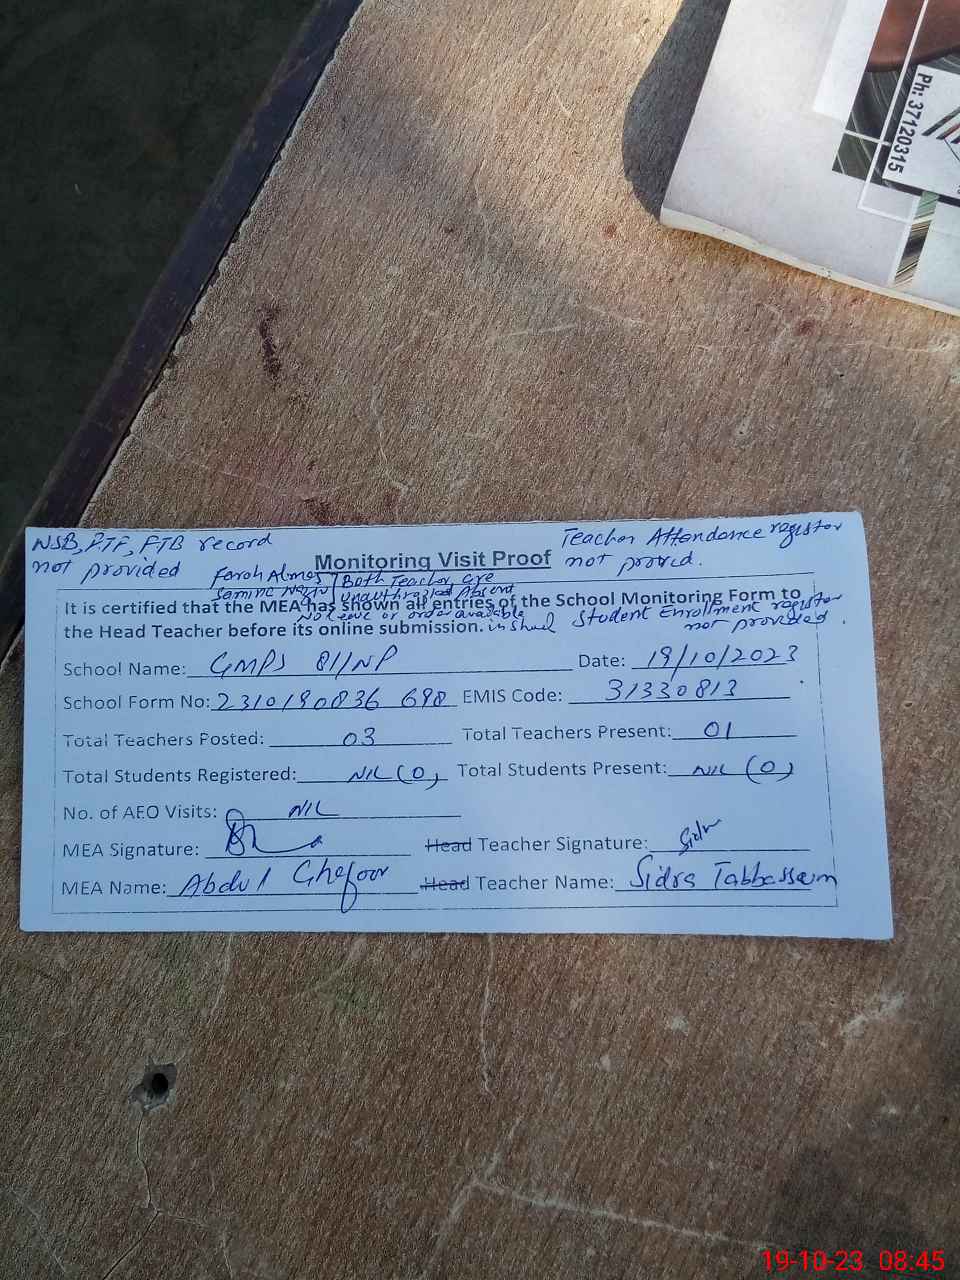 Ph: 37120315
NSB, FTF, FTB record
not provided
Teacher Attendance register
not provid.
Monitoring Visit Proof
Farah
Both Teacher are
Absent
It is certified that the MEA has shown all entries of the School Monitoring Form to
No Leave or order available
in School
the Head Teacher before its online submission.
Student Enrollment register
not provided.
School Name: GMPS 81/NP Date: 19/10/2023
School Form No: 2310190836 698 EMIS Code: 31330813
Total Teachers Posted: 03 Total Teachers Present: 01
Total Students Registered: NIL (0) Total Students Present: NIL (0)
No. of AEO Visits: NIL
MEA Signature: Head Teacher Signature: Sidra
MEA Name: Abdul Ghafoor Head Teacher Name: Sidra Tabbassam
19-10-23 08:45